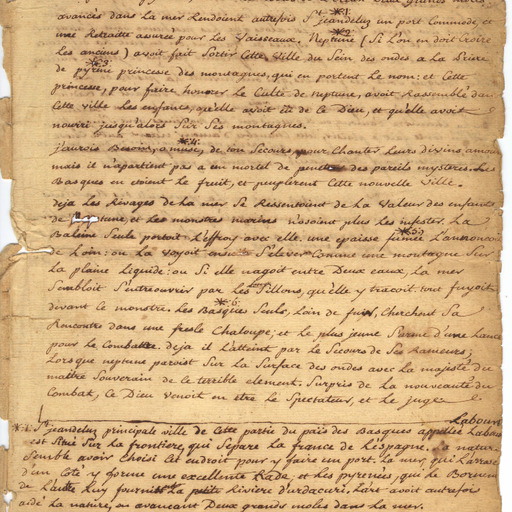 avancés dans la mer Rendoient autrefois St jeandeluz un port Commode, et
une Retraitte assurée pour les Vaisseaux. Neptune (Si L'on en doit Croire
les anciens) avoit fait Sortir Cette Ville du Sein des ondes a La priere
de pyrene princesse des montagnes, qui en portent Le nom: et Cette
princesse, pour faire honorer Le Culte de neptune, avoit Rassemblé dans
Cette Ville les Enfants, qu'elle avoit eu de Ce Dieu, et qu'elle avoit
nourri jusqu'alors Sur Ses montagnes.
j'aurois Besoin, o muse, de ton Secours pour Chanter Leurs divins amours
mais il n'apartient pas a un mortel de des pareils mysteres. Les
Basques en etoient Le fruit, et peuplerent Cette nouvelle Ville.
deja Les Rivages de La mer Se Ressentoient de La Valeur des enfants
de neptune, et Les monstres marins n'osoient plus Les infester. La
Baleine Seule portoit L'effroy avec elle. une epaisse fumée L'annoncoit
de Loin: on La voyoit S'elever Comme une montagne Sur
La plaine Liquide: ou Si elle nageoit entre Deux eaux, La mer
Sembloit S'entreouvrir par les Longs Sillons, qu'elle y tracoit. tout fuyoit
devant Ce monstre. Les Basques Seuls, Loin de fuir, Cherchent Sa
Rencontre dans une fresle Chaloupe; et Le plus jeune S'arme d'une Lance
pour Le Combattre. deja il L'atteint par Le Secours de Ses Rameurs;
Lorsque neptune paroist Sur La Surface des ondes avec La majesté du
maitre Souverain de Ce terrible element. Surpris de La nouveauté du
Combat, Ce Dieu Venoit en etre Le Spectateur, et Le juge
*1. St jeandeluz principale ville de Cette partie du païs des Basques appellée Labourt
est Situé Sur La frontiere, qui Separe La france de L'espagne. La nature
Semble avoir choisi Cet endroit pour y faire un port. La mer, qui L'arrose
d'un Coté y forme une excellente Rade, et Les pyrenées, qui Le Bornent
de L'autre Luy fournissent La petite Riviere d'urdacuri. L'art avoit autrefois
aidé La nature, en avancant Deux grands moles dans La mer.